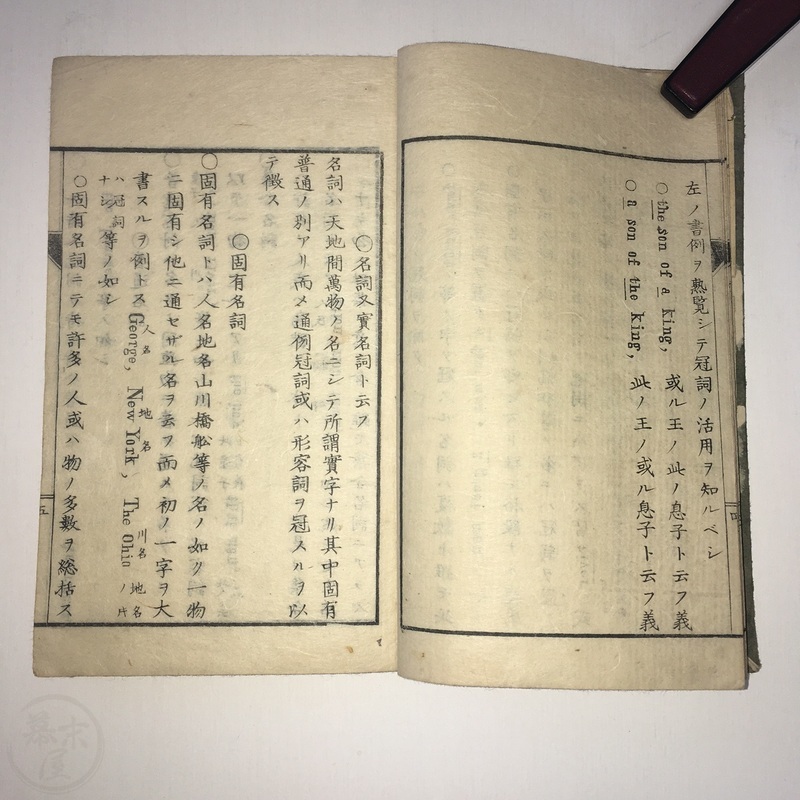 左ノ書例ヲ熟覧シテ冠詞ノ活用ヲ知ルベシ
○the son of a king, 或ル王ノ此ノ息子ト云フ義
○a son of the king, 此ノ王ノ或ル息子ト云フ義
四
○名詞又實名詞ト云フ
名詞ハ天地間萬物ノ名ニシテ所謂實字ナリ其中固有
普通ノ別アリ而メ通例冠詞或ハ形容詞ヲ冠スルヲ以
テ徴ス
○固有名詞
○固有名詞トハ人名地名山川橋舩等ノ名ノ如ク一物
ニ固有シ他ニ通セサル名ヲ云フ而メ初ノ一字ヲ大
書スルヲ例トス George, 人名 New York, 地名 The Ohio 川名 地名ノ片
ハ冠詞ナシ 等ノ如シ
○固有名詞ニテモ許多ノ人或ハ物ノ多數ヲ総括ス
五
幕末屋